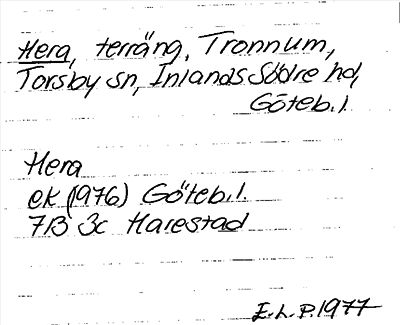 Hera, terräng, Tronnum,
Torsby sn, Inlands Södre hd,
Göteb.l.
Hera
ek (1976) Göteb.l.
7B 3c Harestad
E.L.P. 1977